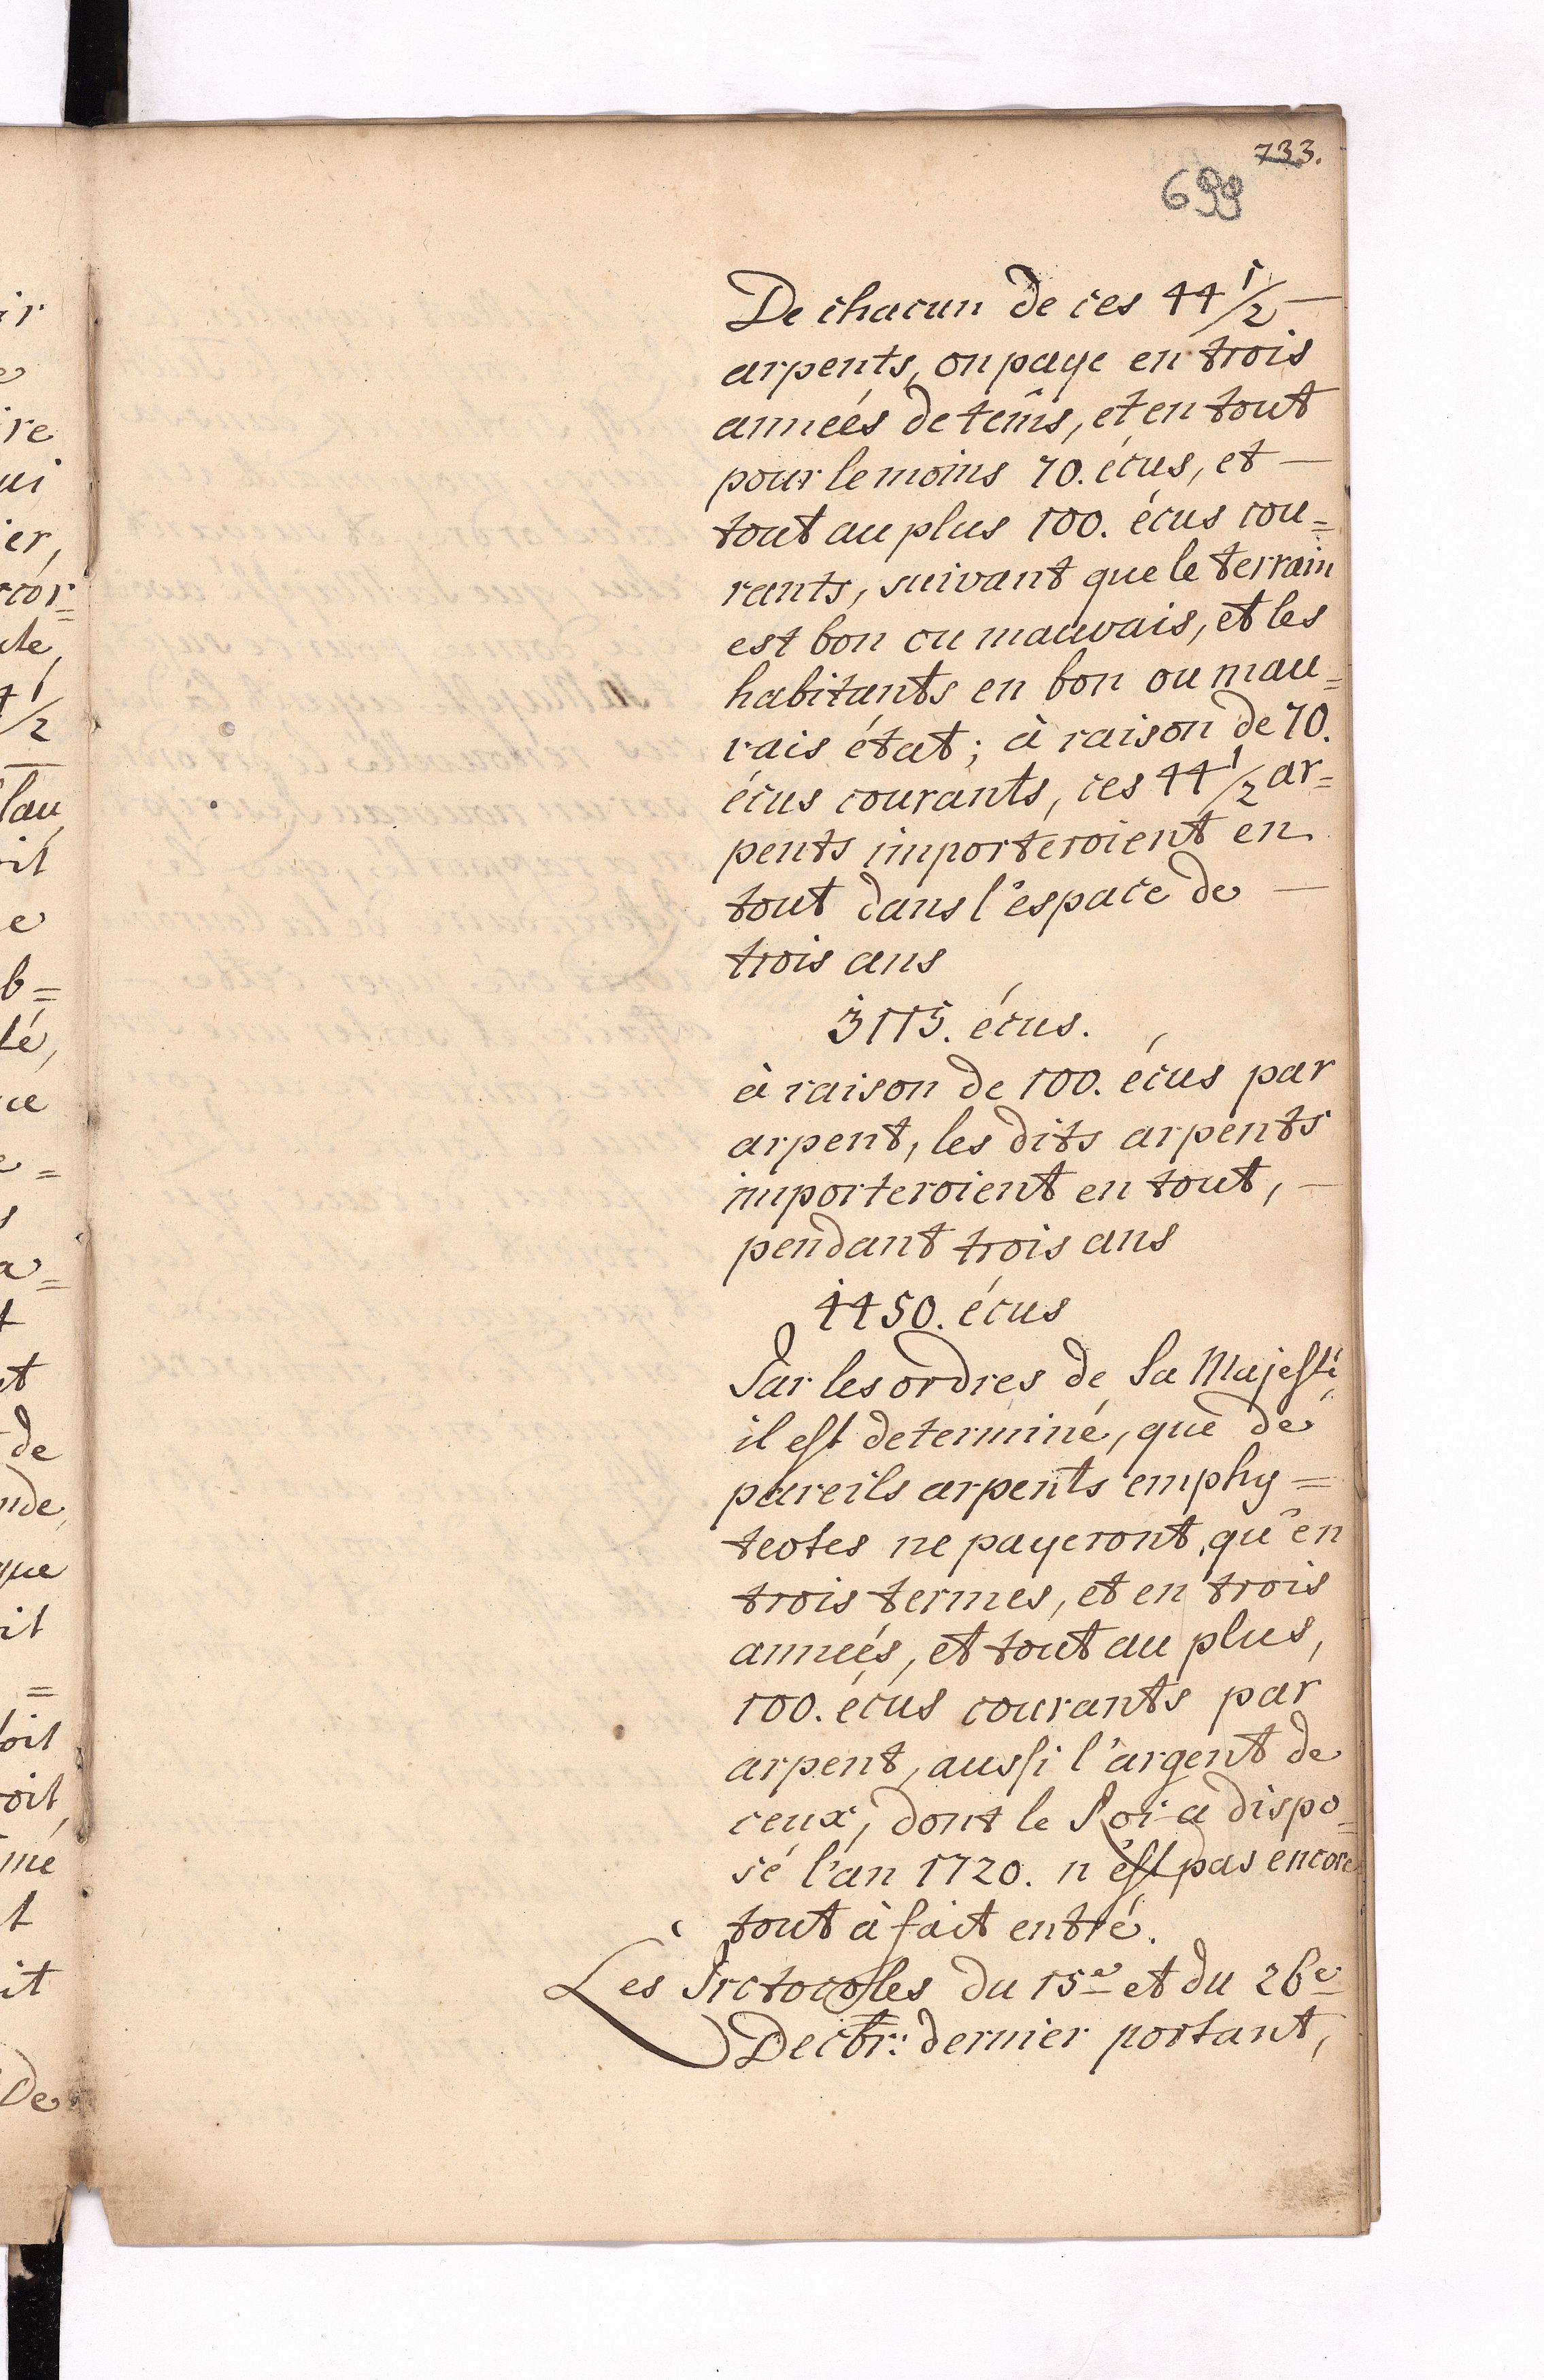 733.
699
De chacun de ces 44 1/2 —
arpents, on paye en trois
anneés de tem̃s, et en tout
pour le moins 70. écus, et —
tout au plus 100. écus cou=
rants, suivant que le terrain
est bon ou mauvais, et les
habitants en bon ou mau=
vais état; à raison de 70.
écus courants, ces 44 1/2 ar=
pents importeroient en
tout dans l'espace de —
trois ans
3115. écus.
à raison de 100. écus par
arpent, les dits arpents
importeroient en tout, —
pendant trois ans
4450. écus
Par les ordres de Sa Majesté
il est determiné, que de
pareils arpents emphy=
teotes ne payeront, qu'en
trois termes, et en trois
anneés, et tout au plus,
100. écus courants par
arpent, aussi l'argent de
ceux, dont le Roi a dispo=
sé l'an 1720. n'est pas encore
tout à fait entré.
Les Protocoles du 15e et du 26e
Decbr: dernier portant,